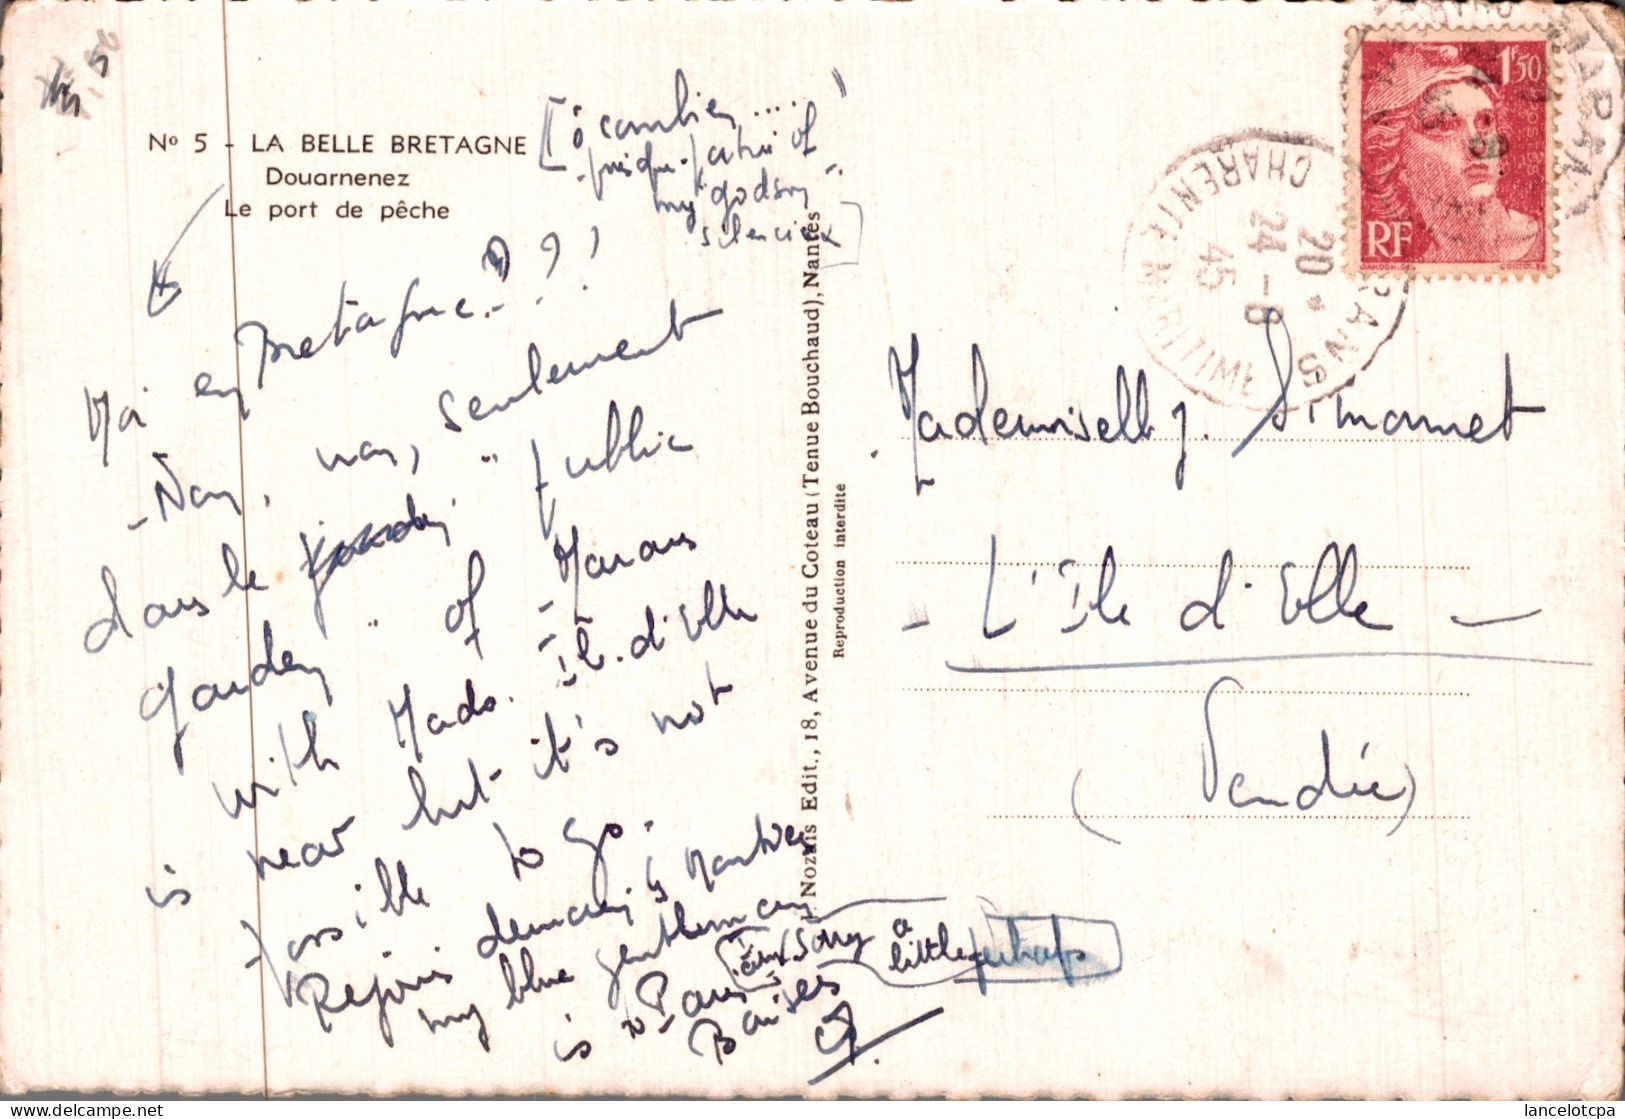 Nº 5 - LA BELLE BRETAGNE
Douarnenez
Le port de pêche
[ô combien ..... "
patrie of
my "godson"
silencieux ]
Moi en Bretagne ? ? ?
- Non, non, seulement
dans le " public
garden " of - Marans -
with Mado. Ile d'Elle
is near but it's not
possible to go.
Rejoins demain
my blue gentleman
is to Paris
I am sorry a little perhaps
Baisers
Nozais Edit., 18, Avenue du Coteau (Tenue Bouchaud), Nantes
Reproduction interdite
1F50
RF
GANDON
MARANS
CHARENTE MARITIME
20 *
24 - 8
45
Mademoiselle J. Simonnet
- L'Ile d'Elle -
(Vendée)
lancelotcpa